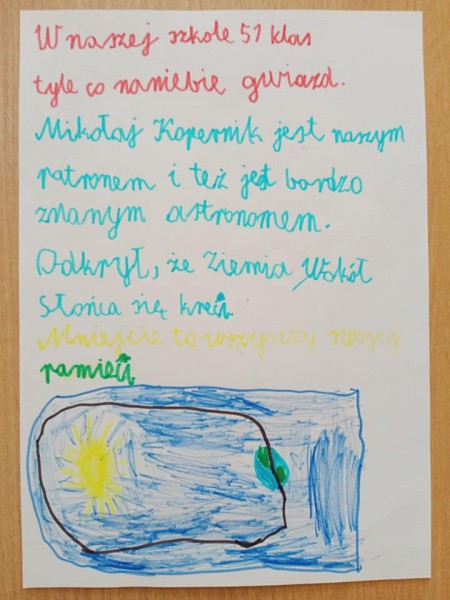 W naszej szkole 51 klas
tyle co naniebie gwiazd.
Mikołaj Kopernik jest naszym
patronem i też jest bardzo
znanym astronomem.
Odkrył, że Ziemia Wokół
Słońca się kręci.
Miniejcie to wszyscy
pamięci